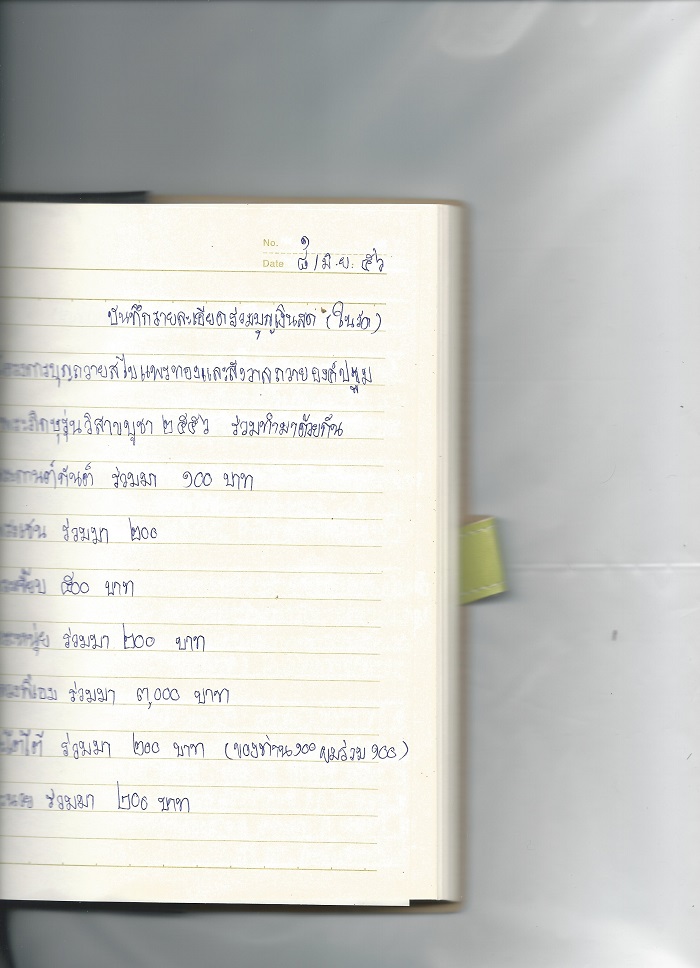 No. ๑
Date ๘ / มิ.ย. ๕๖
บันทึกรายละเอียดร่วมบุญเงินสด (ในวัด)
โครงการบุญถวายสไบแพรทองและสังวาลถวายองค์ปฐม
พระภิกษุรุ่นวิสาขบูชา ๒๕๕๖ ร่วมทำมาด้วยกัน
ร่วมมา ๑๐๐ บาท
ร่วมมา ๒๐๐
๕๐๐ บาท
ร่วมมา ๒๐๐ บาท
ร่วมมา ๓,๐๐๐ บาท
ร่วมมา ๒๐๐ บาท (ของท่าน ๑๐๐ ผมร่วม ๑๐๐)
ร่วมมา ๒๐๐ บาท